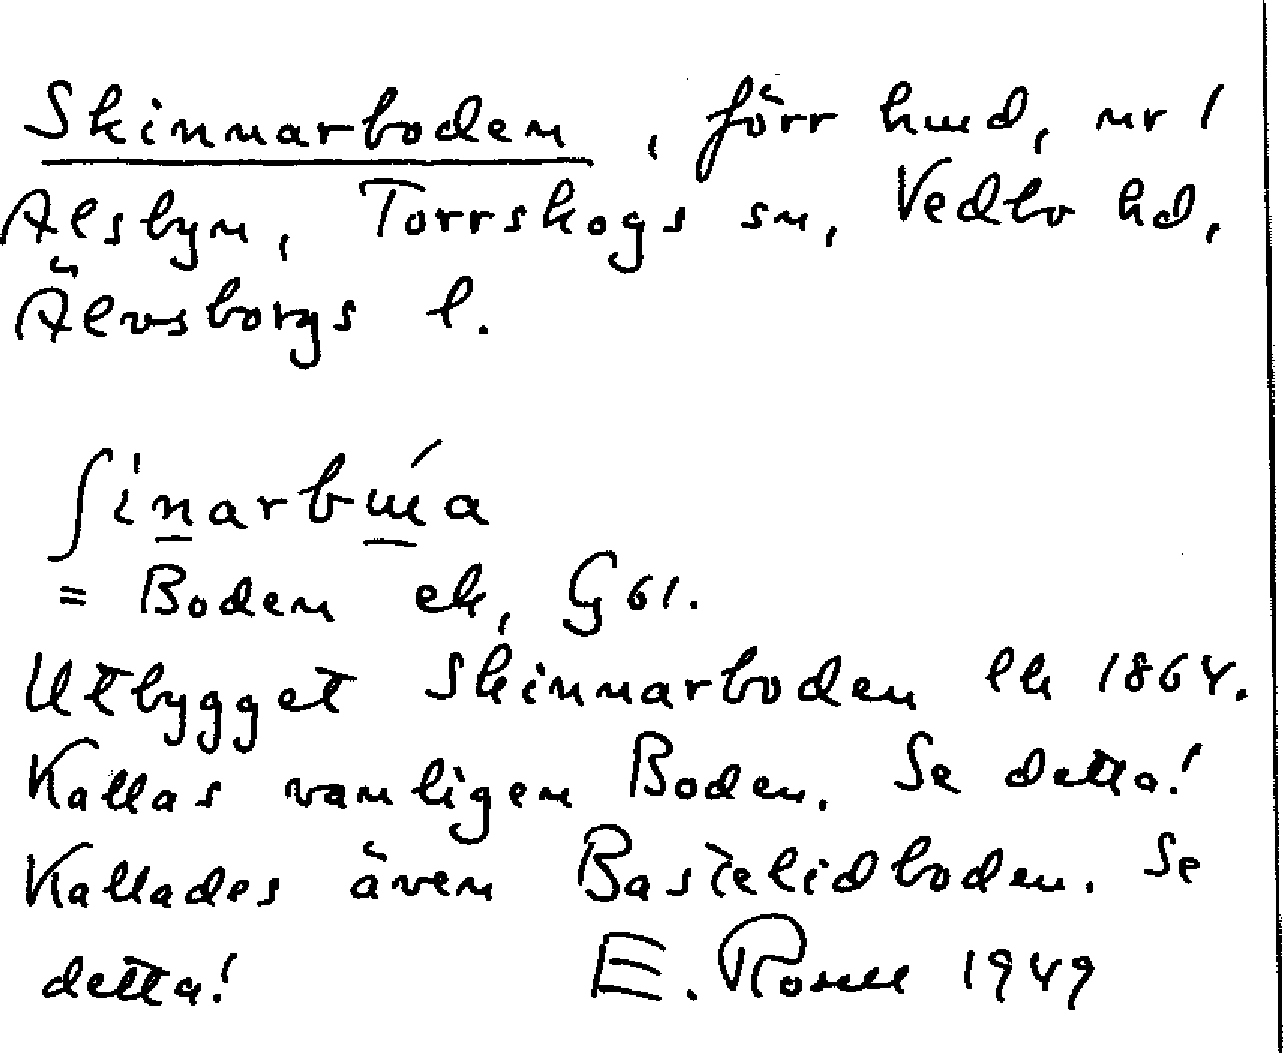 Skinnarboden, förr hmd, nr 1
Alsbyn, Torrskogs sn, Vedbo hd,
Älvsborgs l.
ʃinarbu̇́a
= Boden ek, G 61.
Utbygget Skinnarboden lh 1864.
Kallas vanligen Boden. Se detta!
Kallades även Bastelidboden. Se
detta! E. Rosell 1949